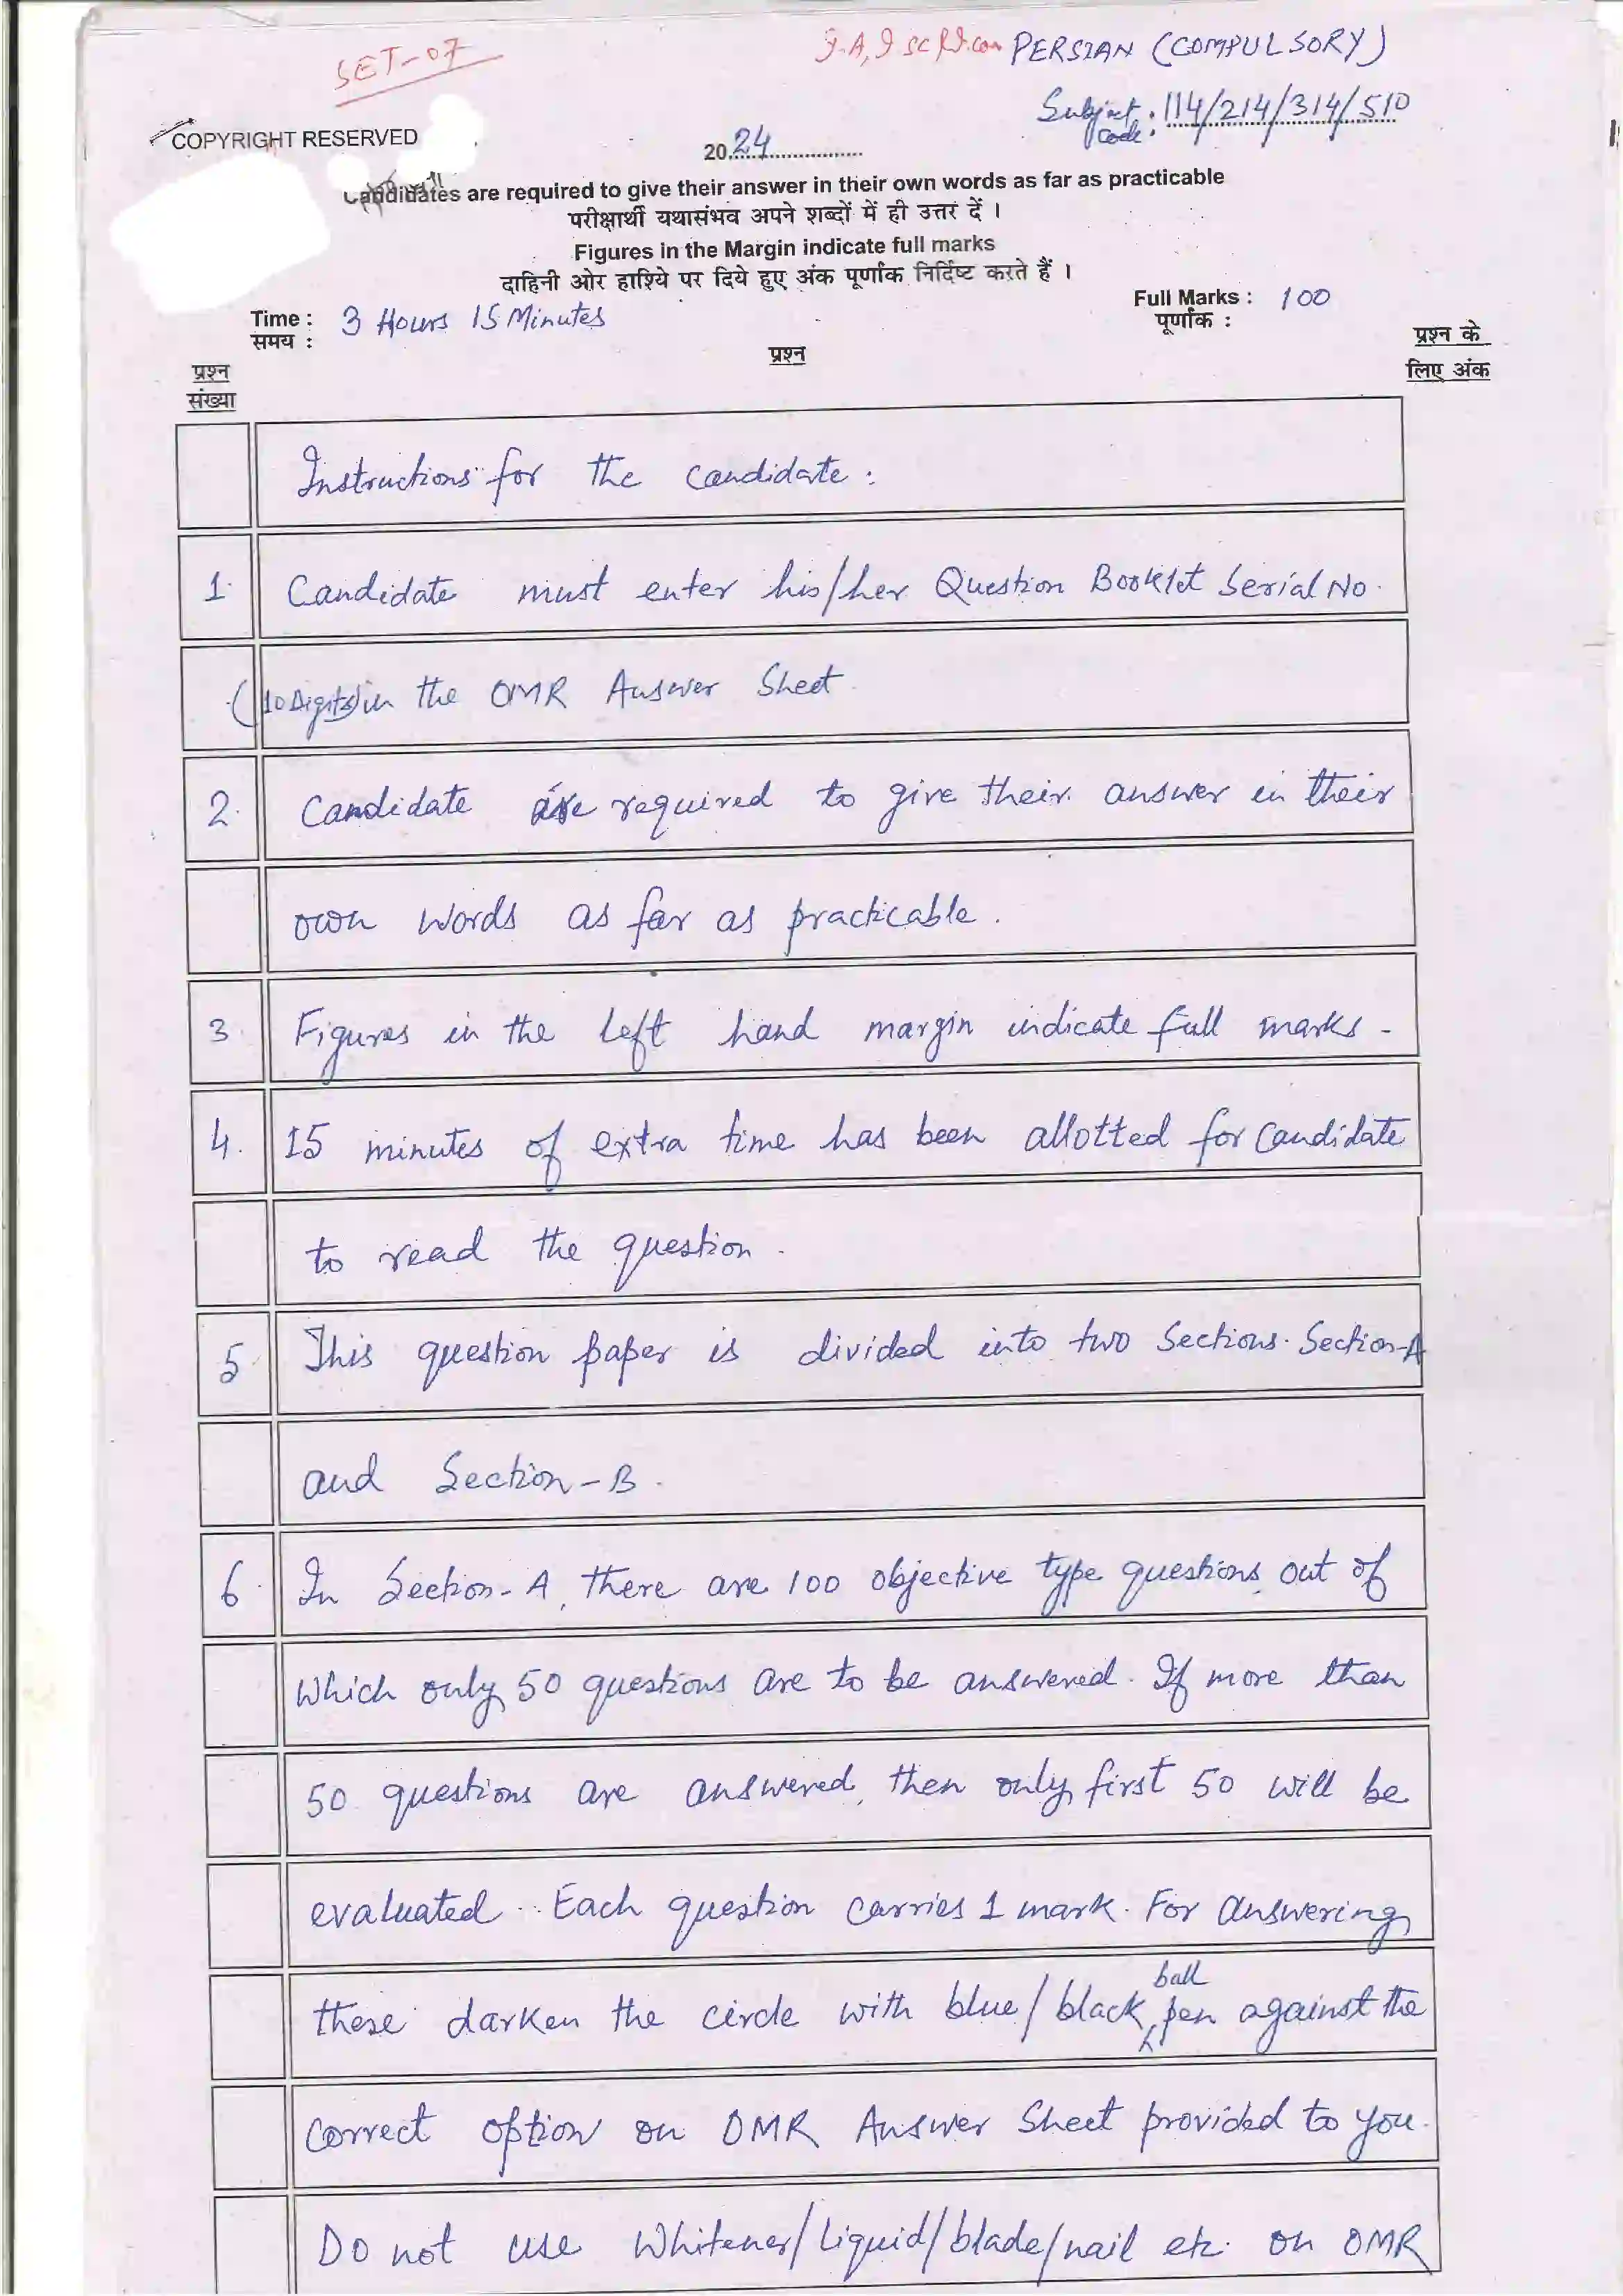 SET-07
I.A, I.Sc & I.Com PERSIAN (COMPULSORY)
Subject Code : 114/214/314/510
COPYRIGHT RESERVED
2024
Candidates are required to give their answer in their own words as far as practicable
परीक्षार्थी यथासंभव अपने शब्दों में ही उत्तर दें ।
Figures in the Margin indicate full marks
दाहिनी ओर हाशिये पर दिये हुए अंक पूर्णांक निर्दिष्ट करते हैं ।
Time : 3 Hours 15 Minutes
समय :
Full Marks : 100
पूर्णांक :
प्रश्न संख्या
प्रश्न
प्रश्न के लिए अंक
Instructions for the candidate :
1. Candidate must enter his/her Question Booklet Serial No.
(10 Digits) in the OMR Answer Sheet.
2. Candidate are required to give their answer in their
own words as far as practicable.
3 Figures in the left hand margin indicate full marks -
4. 15 minutes of extra time has been allotted for candidate
to read the question.
5. This question paper is divided into two Sections. Section-A
and Section-B.
6. In Section-A, there are 100 objective type questions, out of
which only 50 questions are to be answered. If more than
50 questions are answered, then only first 50 will be
evaluated. Each question carries 1 mark. For answering
these darken the circle with blue/black ball pen against the
correct option on OMR Answer Sheet provided to you.
Do not use Whitener/Liquid/blade/nail etc. on OMR